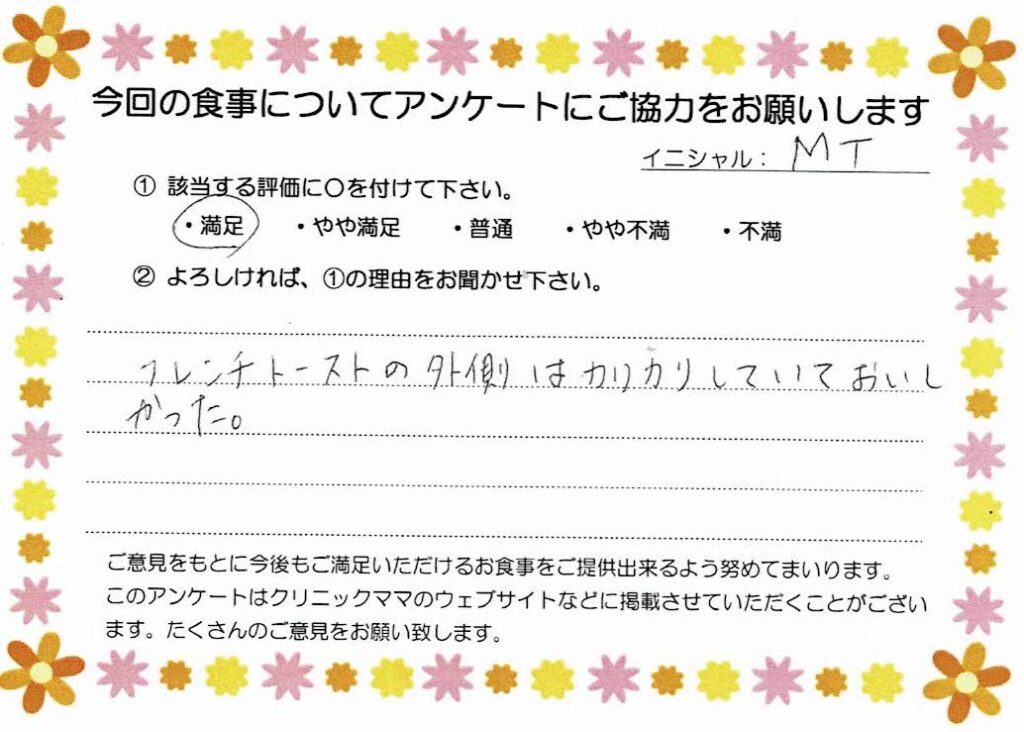 今回の食事についてアンケートにご協力をお願いします
イニシャル： MT
① 該当する評価に〇を付けて下さい。
・満足 ・やや満足 ・普通 ・やや不満 ・不満
② よろしければ、①の理由をお聞かせ下さい。
フレンチトーストの外側はカリカリしていておいし
かった。
ご意見をもとに今後もご満足いただけるお食事をご提供出来るよう努めてまいります。
このアンケートはクリニックママのウェブサイトなどに掲載させていただくことがござい
ます。たくさんのご意見をお願い致します。